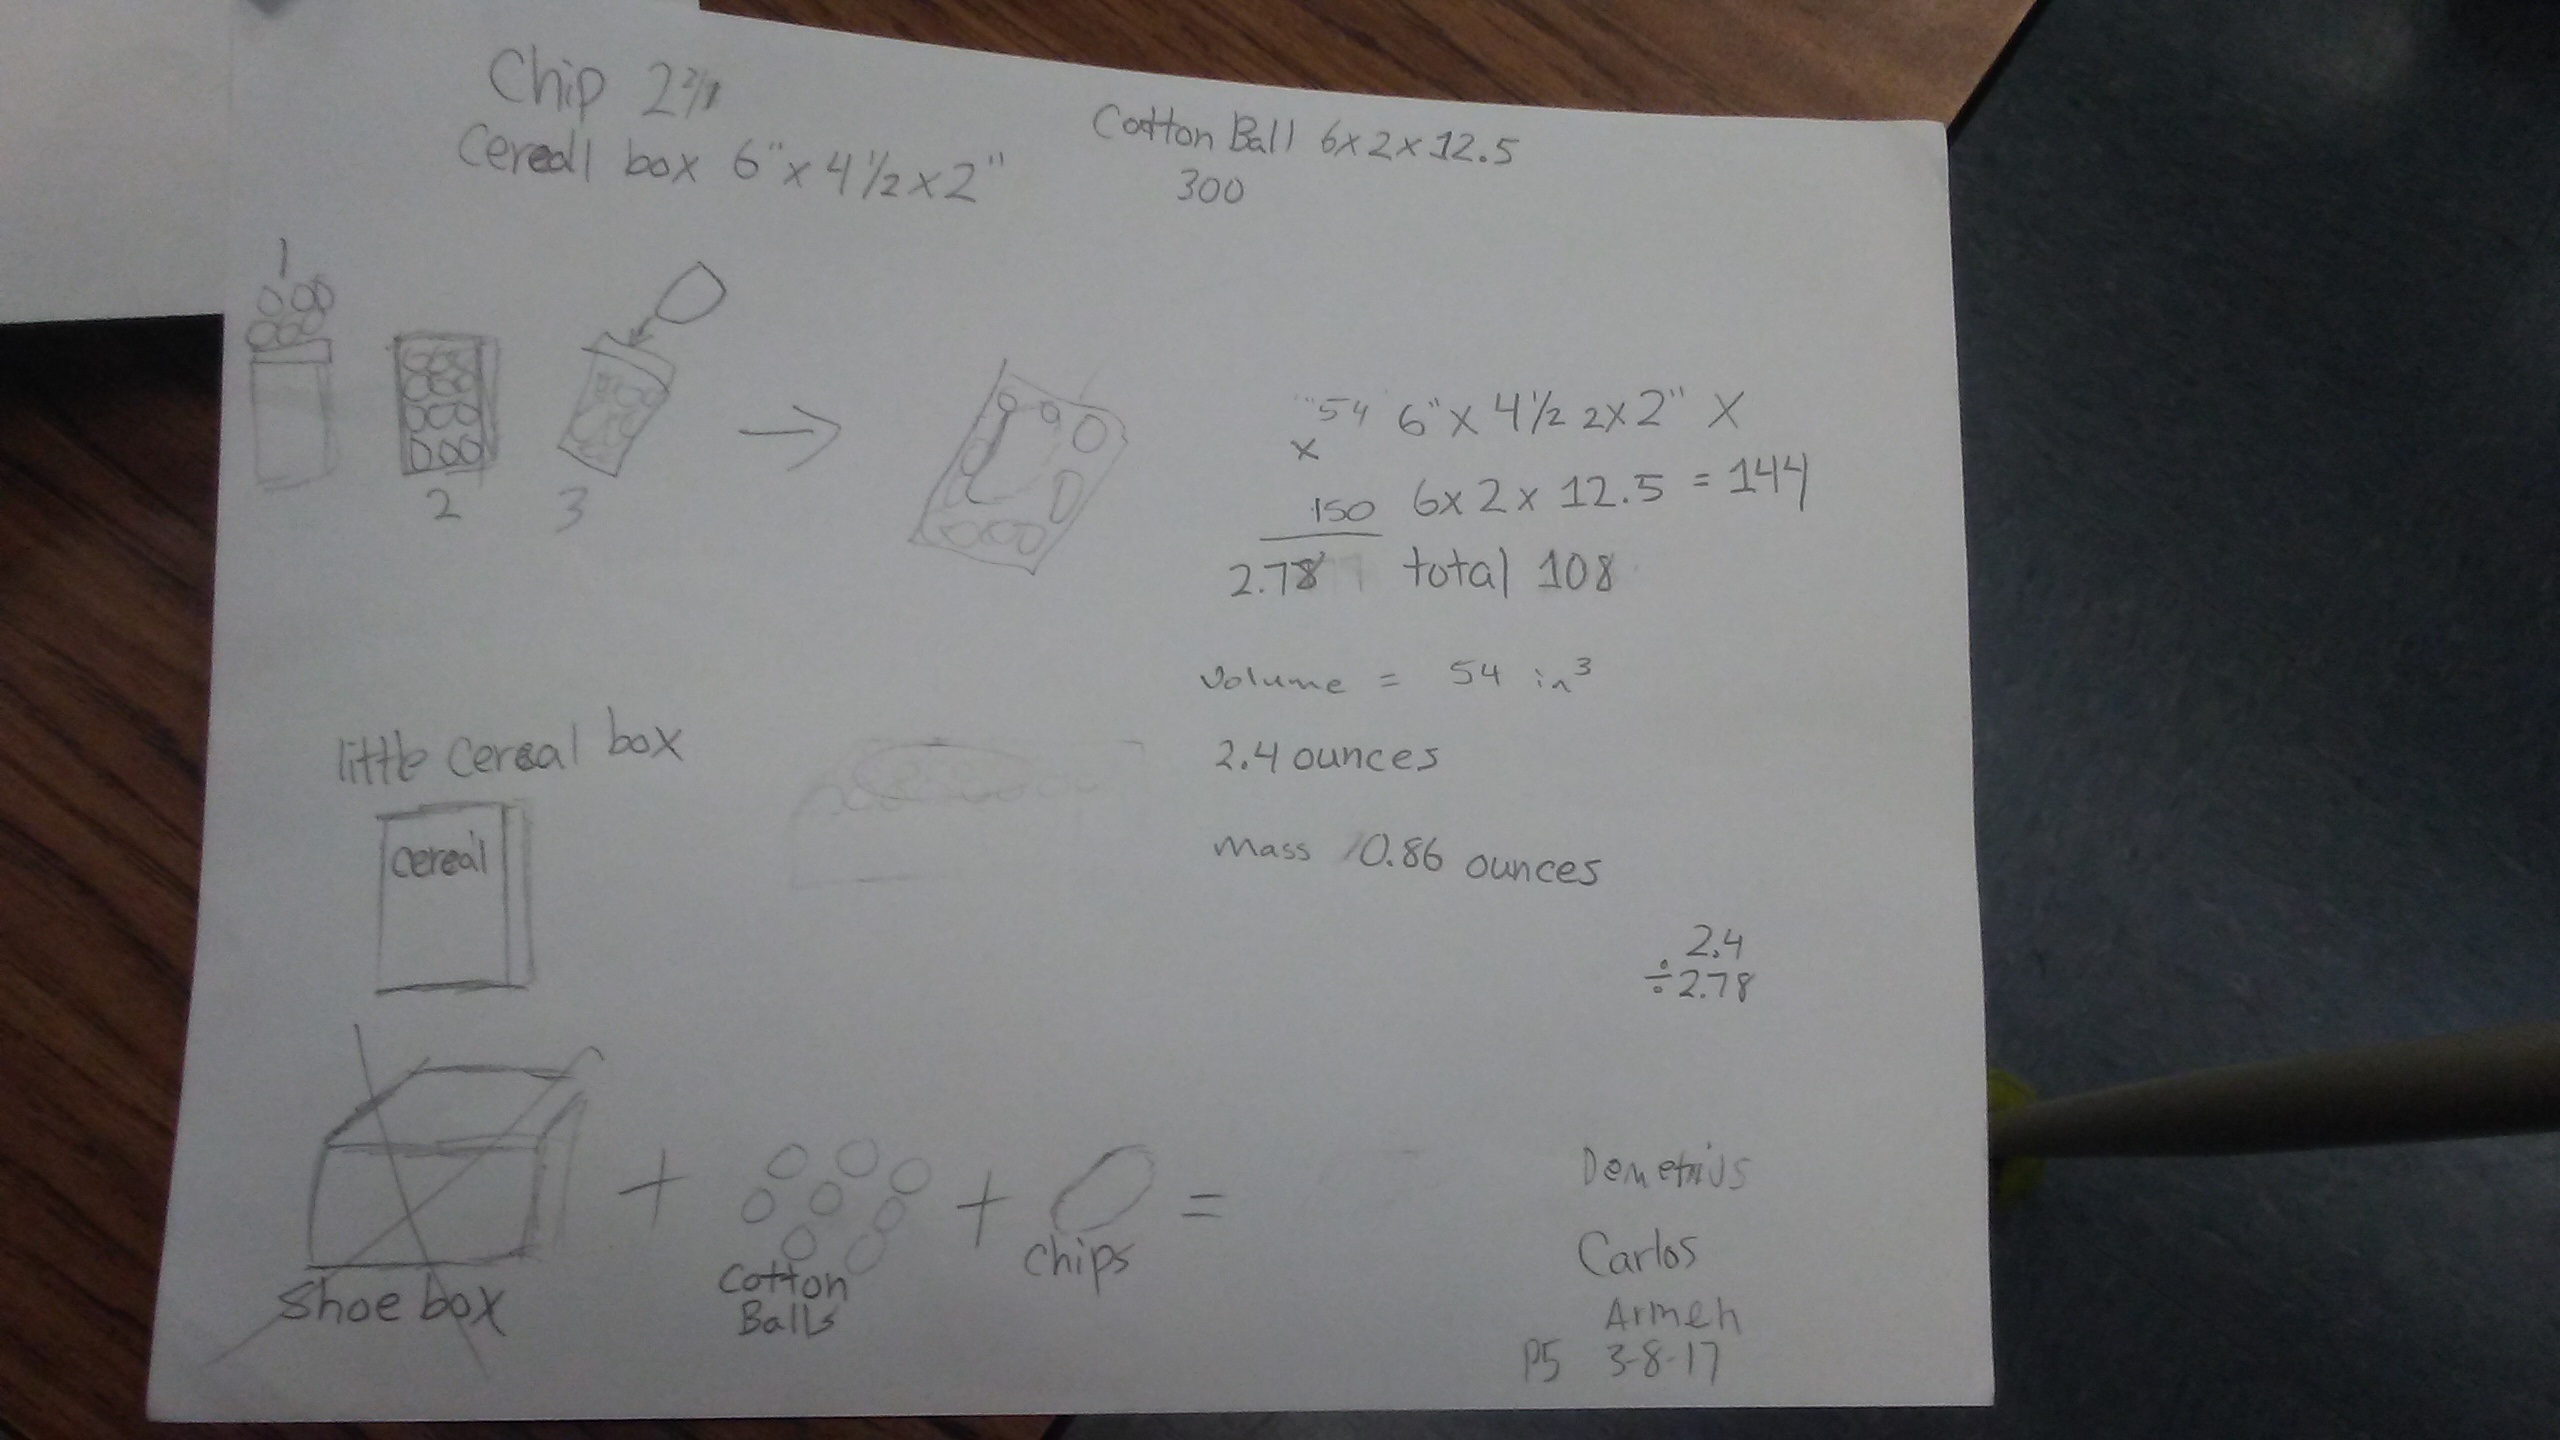 Chip 2
Cereal box 6" x 4 1/2 x 2"
Cotton Ball 6x2x12.5
300
1
2
3
54 6" x 4 1/2 2x2" X
x
150 6x2x12.5 = 144
2.78 total 108
volume = 54 in³
2.4 ounces
mass 0.86 ounces
2.4
÷2.78
little cereal box
cereal
+ + =
Shoe box
Cotton
Balls
Chips
Demetrius
Carlos
Armen
P5 3-8-17